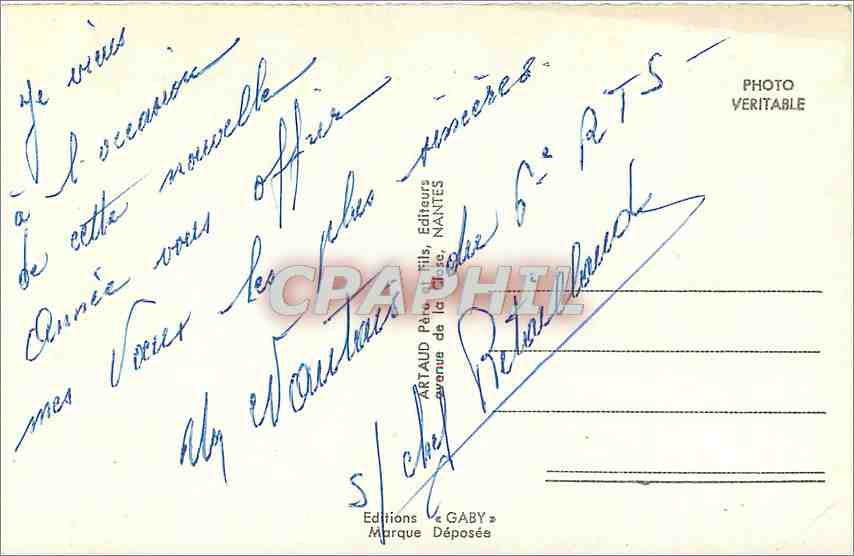 Je viens
à l'occasion
de cette nouvelle
Année vous offrir
mes Vœux les plus sincères.
Un Nantais du 6e RTS -
s/chef
PHOTO
VERITABLE
ARTAUD Père et Fils, Editeurs
avenue de la Close, NANTES
CPARHIL
Editions « GABY »
Marque Déposée